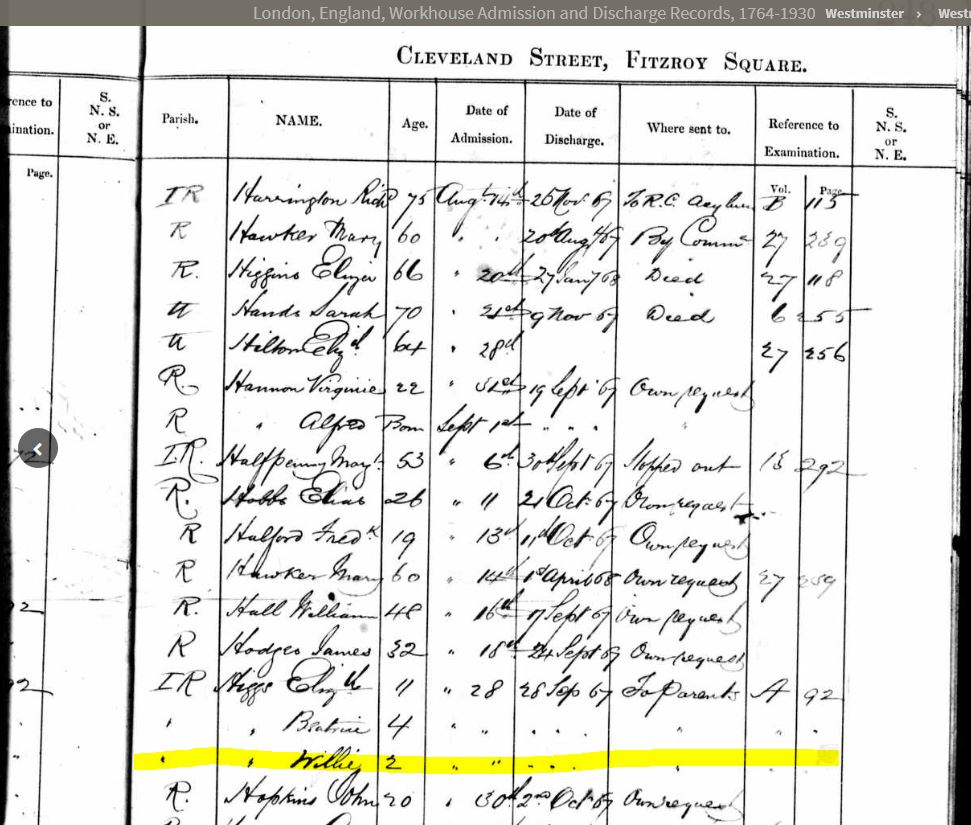 London, England, Workhouse Admission and Discharge Records, 1764-1930 Westminster › West
CLEVELAND STREET, FITZROY SQUARE.
rence to ination. S. N. S. or N. E. Parish. NAME. Age. Date of Admission. Date of Discharge. Where sent to. Reference to Examination. S. N. S. or N. E.
Page. Vol. Page
IR Harrington Richd 75 Augt 14th 26 Nov 67 To R.C. Asylum B 115
R Hawker Mary 60 " " 20th Augt 67 By Commn 27 259
R. Higgins Eliza 66 " 20th 27 Jany 68 Died 27 118
Hands Sarah 70 " 21st 9 Nov 67 Died 6 255
Hilton Elizth 64 " 28th 27 256
R. Hannon Virginie 22 " 31st 19 Sept 67 Own request
R " Alfred Born Sept 1st " " " "
IR. Halfpenny Margt 53 " 6th 30th Sept 67 Stopped out 13 292
R. Hobbs Elias 26 " 11 21 Oct 67 Own request
R Halford Fredk 19 " 13th 11th Oct 67 Own request
R Hawker Mary 60 " 14th 1st April 68 Own request 27 259
R. Hall William 48 " 16th 17 Sept 67 Own request
R Hodges James 32 " 18th 24 Sept 67 Own request
IR Higgs Elizth 11 " 28 28 Sep 67 To Parents A 92
" " Beatrice 4 " " " " " " " "
" " Willie 2 " " " " " "
R. Hopkins John 20 " 30th 2nd Oct 67 Own request